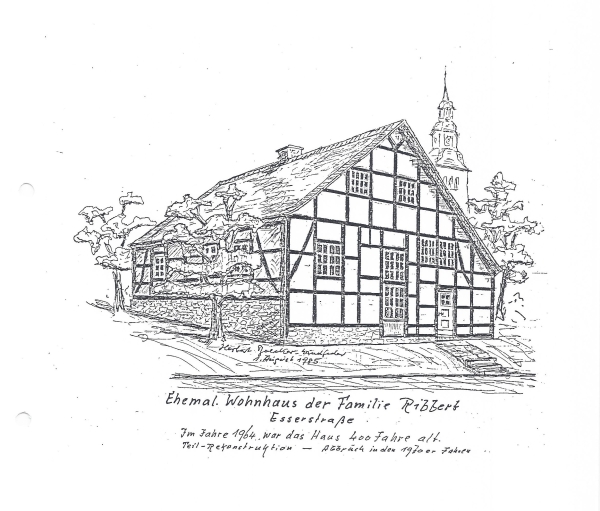 Herbert
8. August 1985
Ehemal. Wohnhaus der Familie Ribbert
Esserstraße
Im Jahre 1964 war das Haus 400 Jahre alt.
Teil-Rekonstruktion — Abbruch in den 1970er Jahren